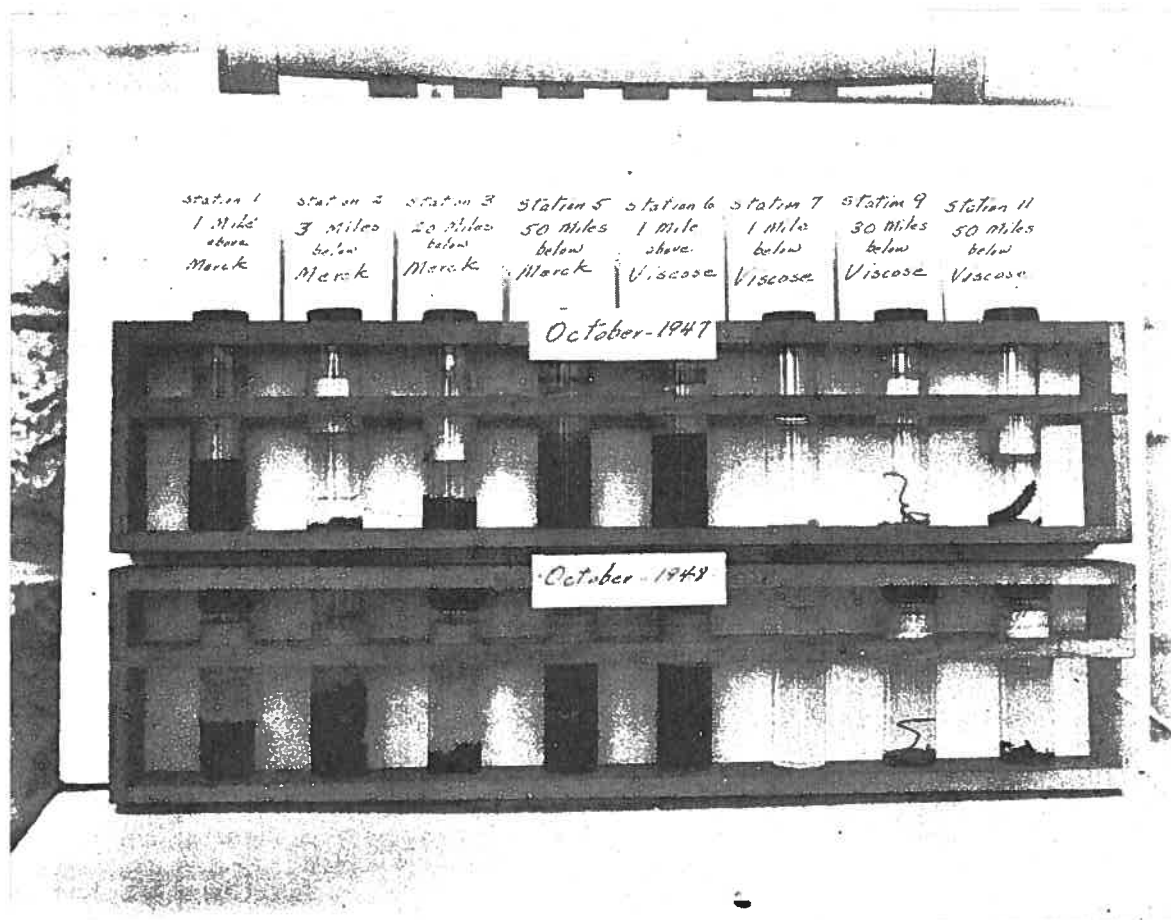 Station 1
1 Mile
above
Merck
Station 2
3 Miles
below
Merck
Station 3
20 Miles
below
Merck
Station 5
50 Miles
below
Merck
Station 6
1 Mile
above
Viscose
Station 7
1 Mile
below
Viscose
Station 9
30 Miles
below
Viscose
Station 11
50 Miles
below
Viscose
October-1947
October-1948